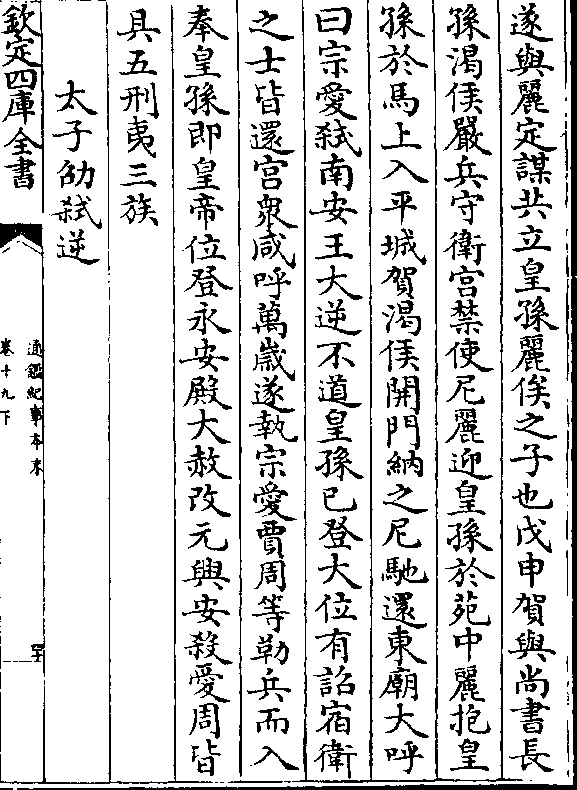 遂與麗定謀共立皇孫麗俟之子也戊申賀與尚書長
孫渴侯嚴兵守衛宫禁使尼麗迎皇孫於苑中麗抱皇
孫於馬上入平城賀渴侯開門納之尼馳還東廟大呼
曰宗愛弑南安王大逆不道皇孫已登大位有詔宿衛
之士皆還宫衆咸呼萬歲遂執宗愛賈周等勒兵而入
奉皇孫即皇帝位登永安殿大赦改元興安殺愛周皆
具五刑夷三族
太子劭弑逆
欽定四庫全書
通鑑紀事本末
卷十九下